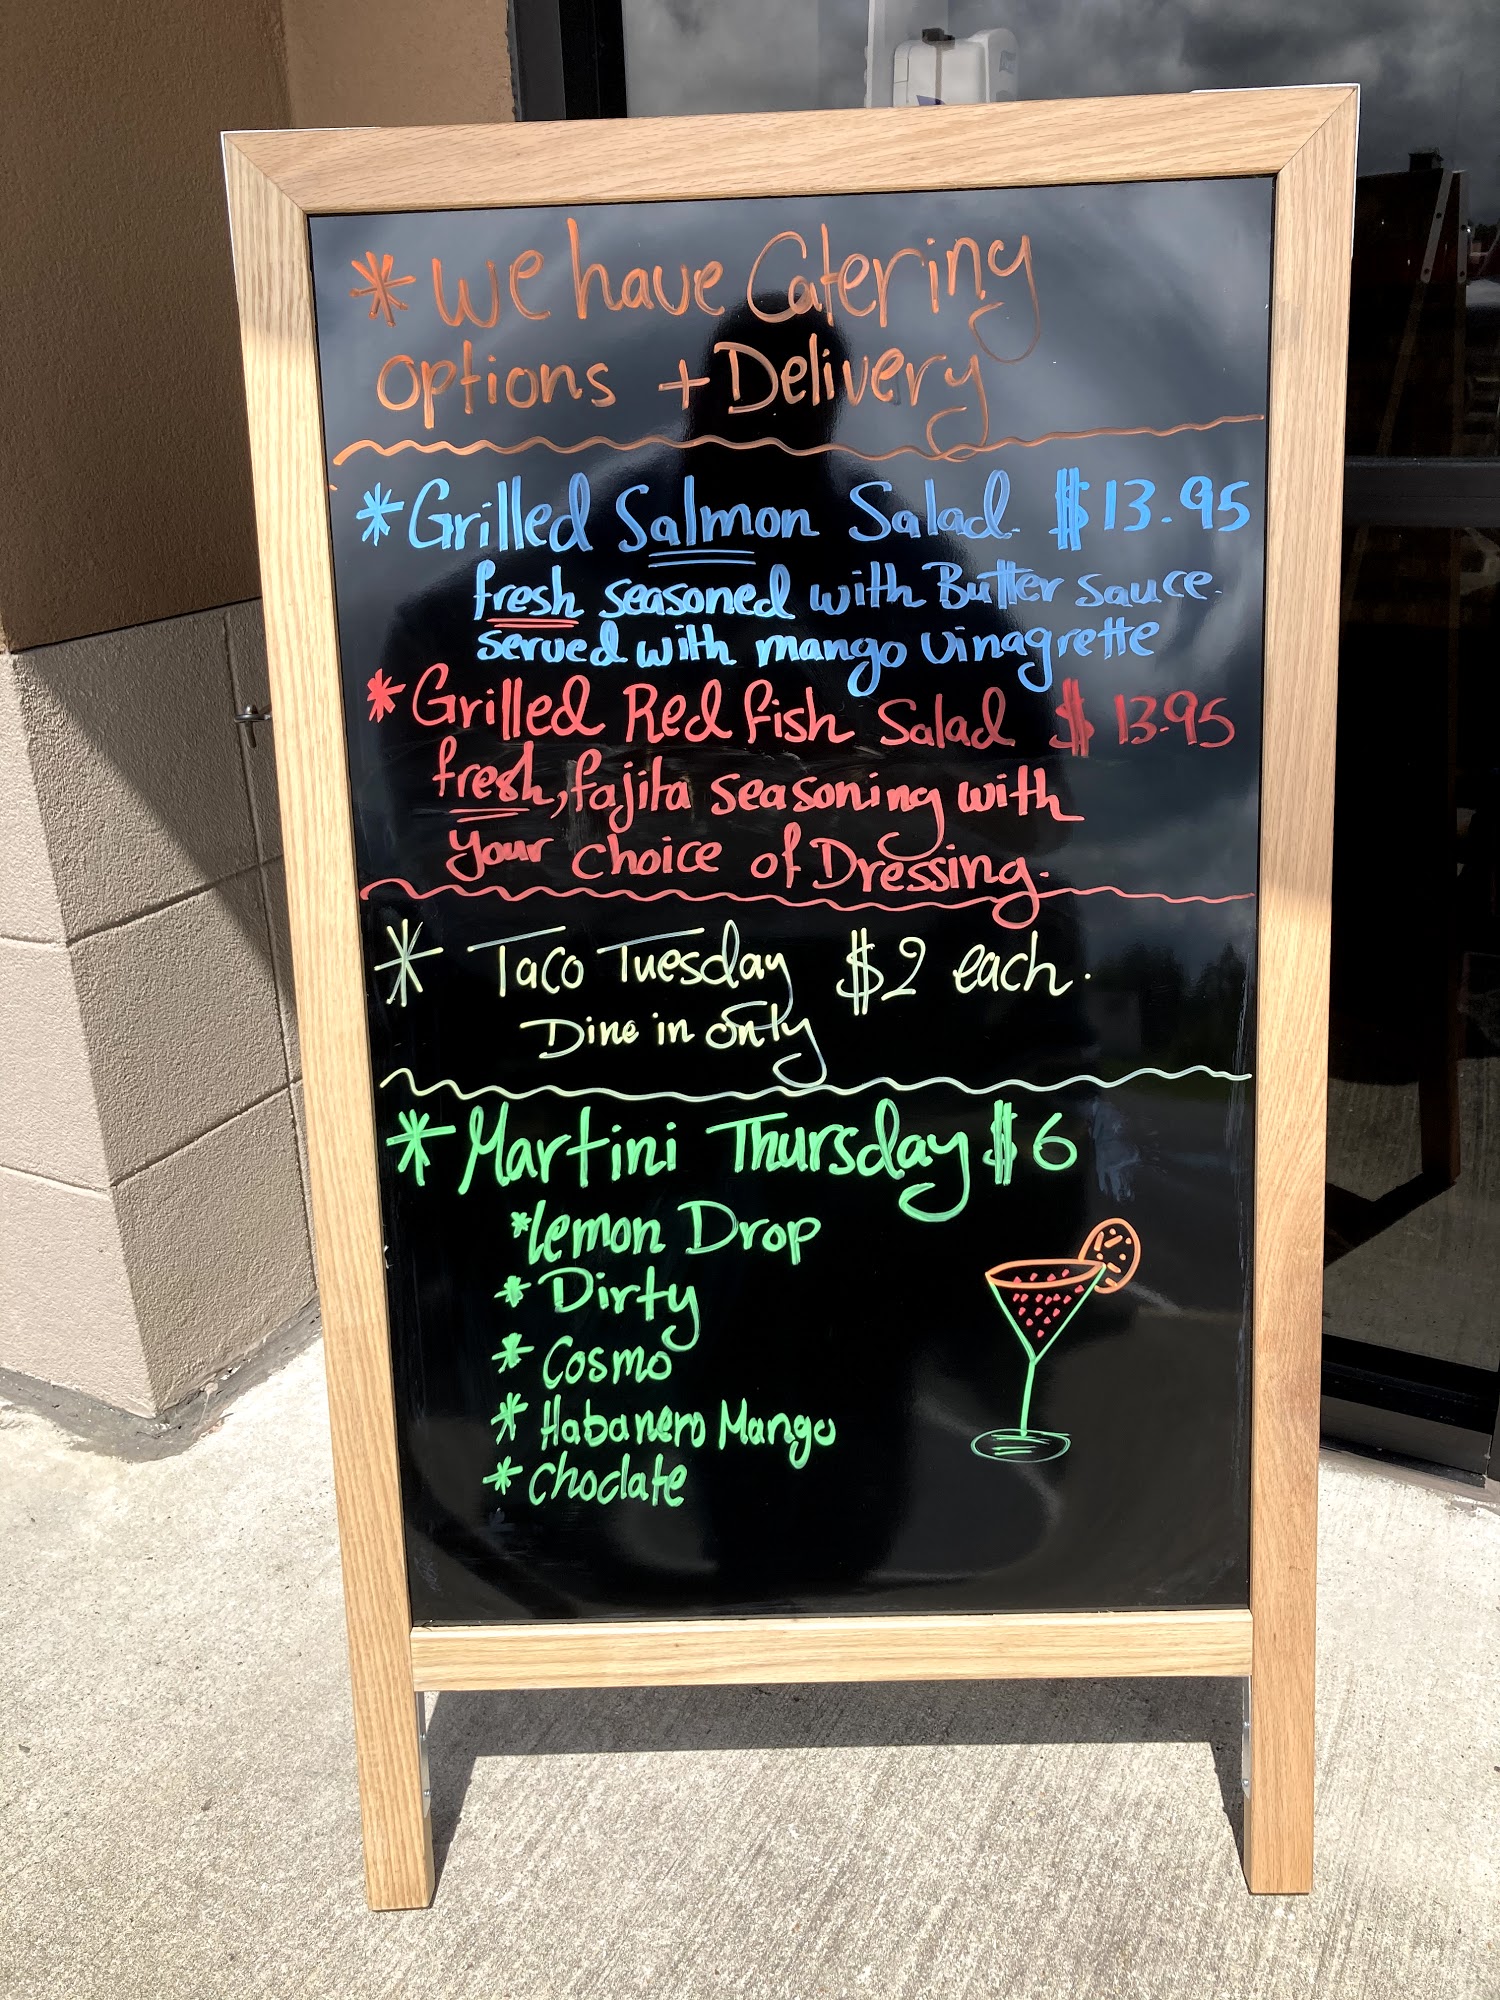 * We have Catering
options + Delivery
* Grilled Salmon Salad. $13.95
fresh seasoned with Butter sauce.
served with mango vinagrette
* Grilled Red fish Salad $13.95
fresh, fajita seasoning with
your choice of Dressing.
* Taco Tuesday $2 each.
Dine in only
* Martini Thursday $6
* Lemon Drop
* Dirty
* Cosmo
* Habanero Mango
* Choclate